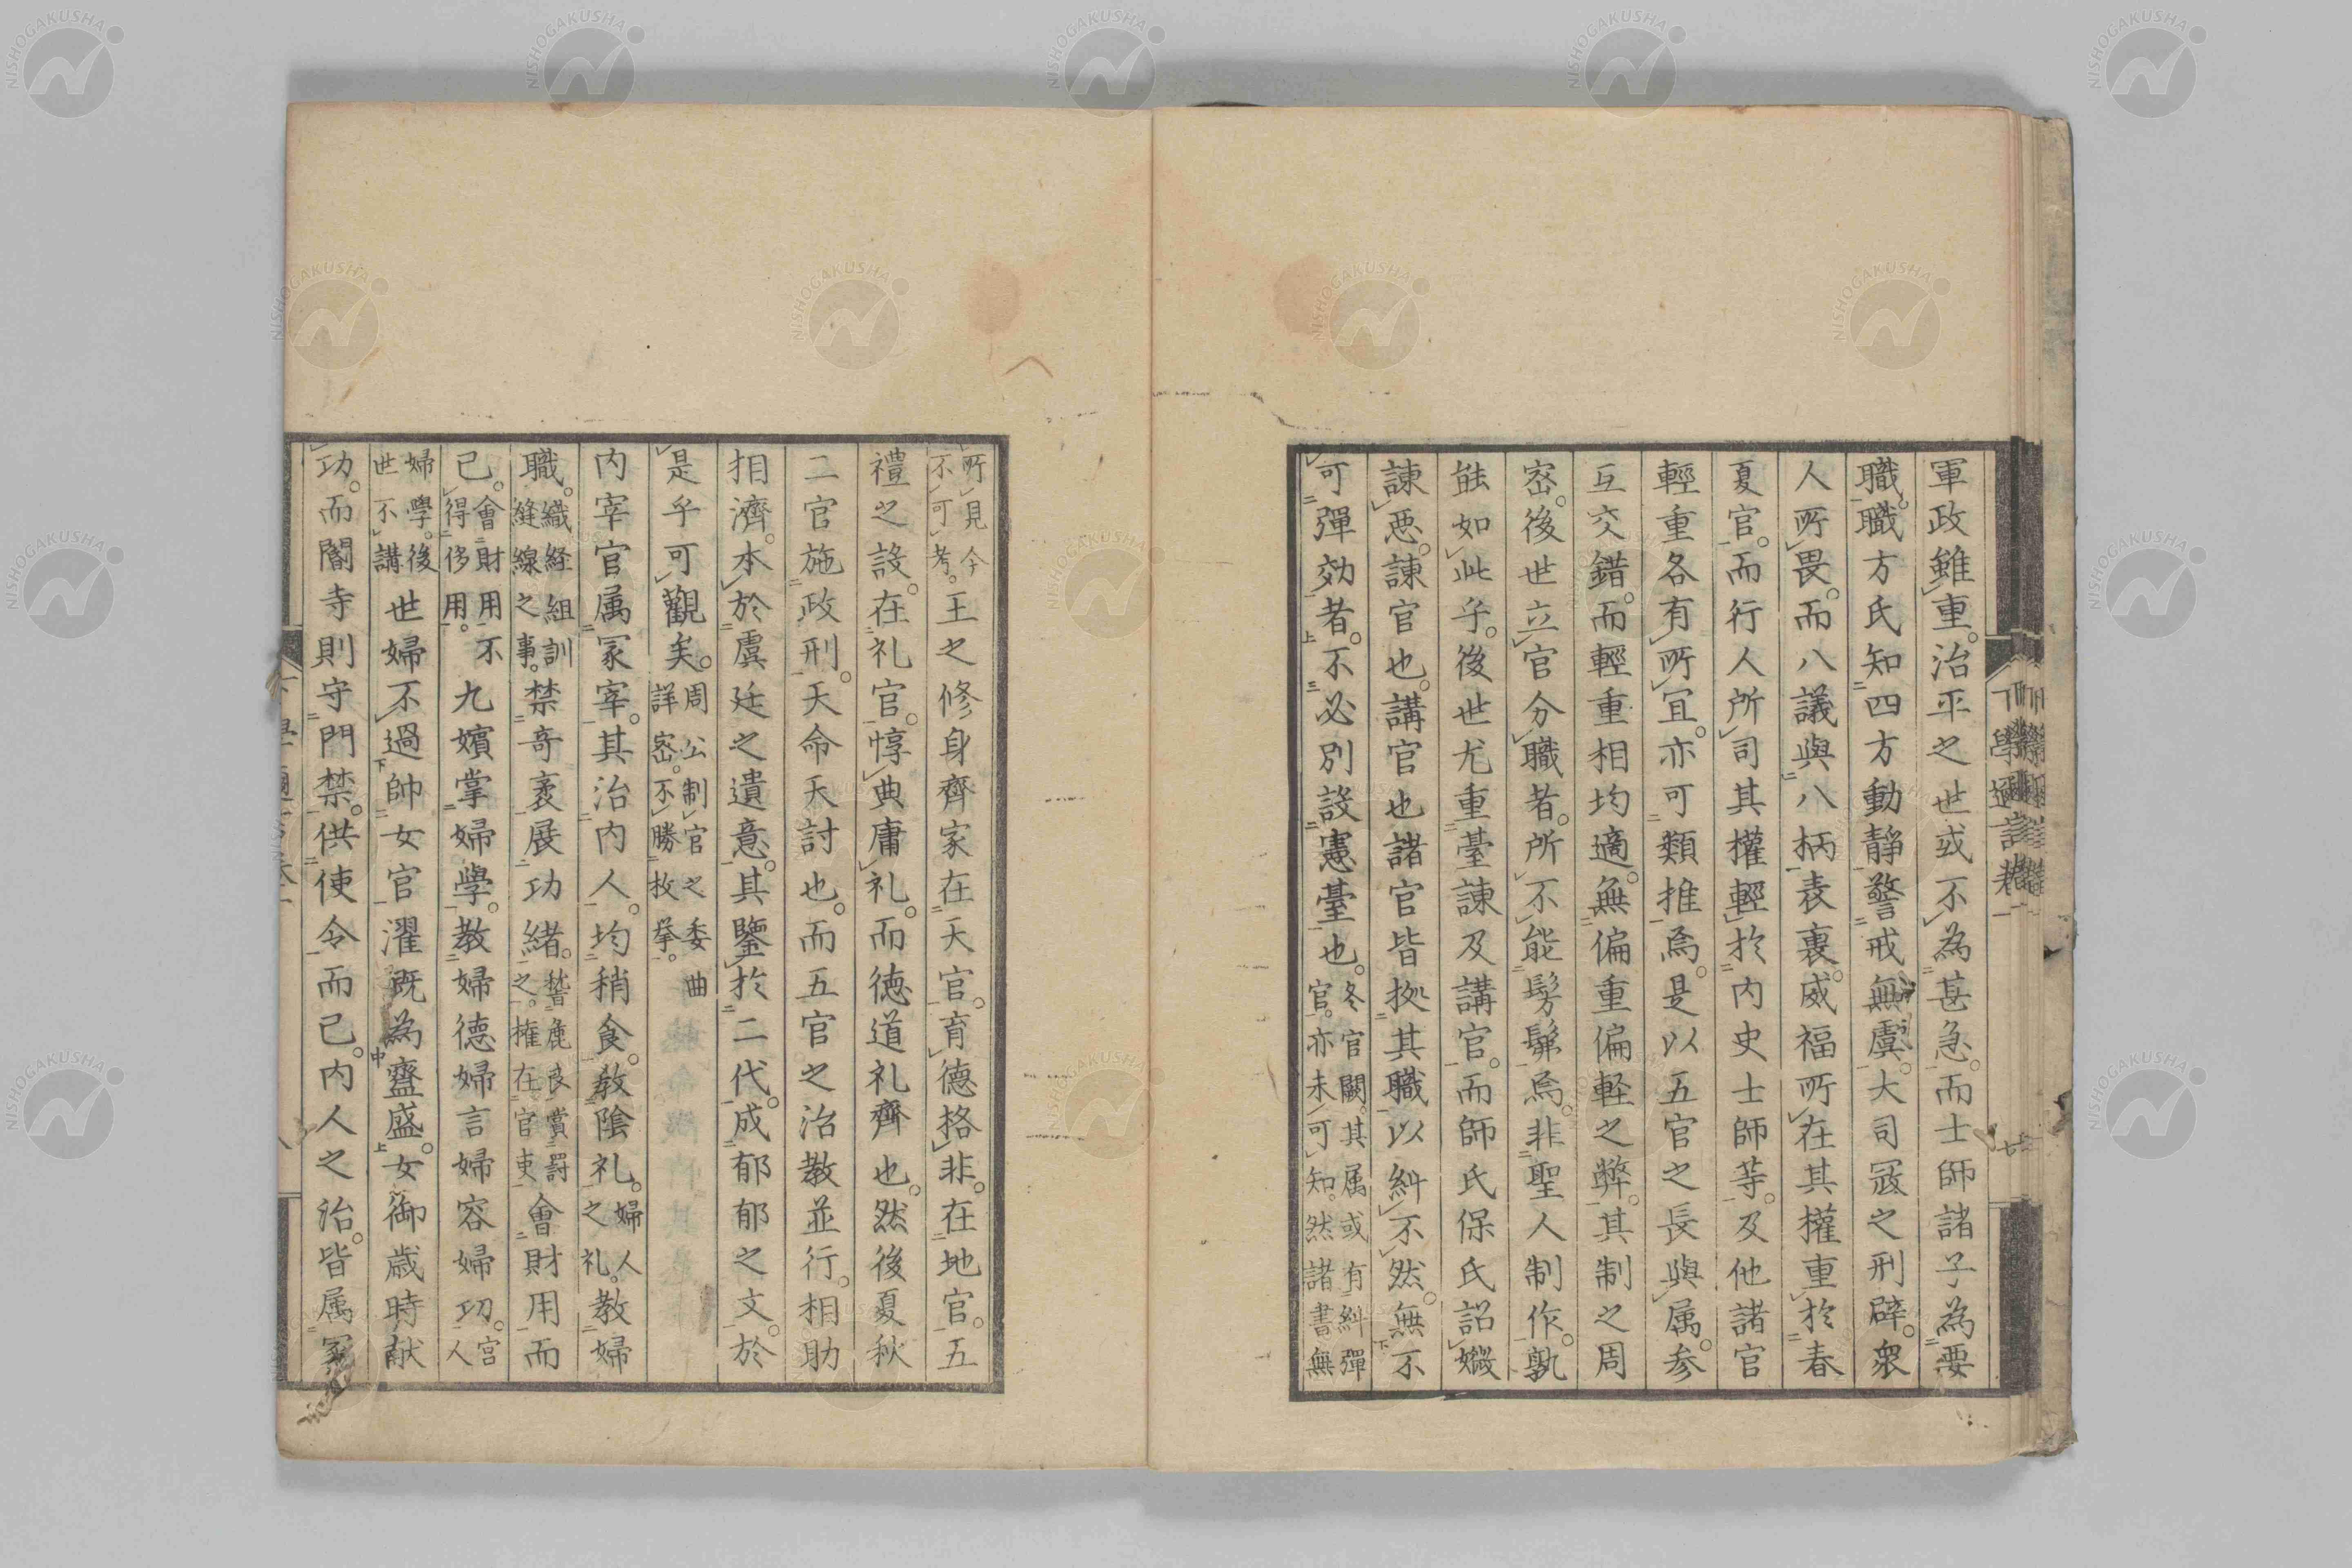 軍政雖重。治平之世或不為甚急。而士師諸子為要
職。職方氏知四方動静警戒無虞。大司冦之刑辟。衆
人所畏。而八議與八柄表裏。威福所在其權重於春
夏官。而行人所司其權輕於内史士師等。及他諸官
輕重各有所宜。亦可類推焉。是以五官之長與属。参
互交錯。而輕重相均適。無偏重偏軽之弊。其制之周
宻。後世立官分職者。所不能髣髴焉。非聖人制作。孰
能如此乎。後世尤重臺諫及講官。而師氏保氏詔媺
諫惡。諫官也。講官也諸官皆拠其職以糾不然。無不
可彈効者。不必別設憲臺也。冬官闕。其属或有糾彈
官。亦未可知。然諸書無
所見今
不可考。王之修身齊家在天官。育德格非。在地官。五
禮之設。在礼官。惇典庸礼。而徳道礼齊也。然後夏秋
二官施政刑。天命天討也。而五官之治教並行。相助
相濟。本於虞廷之遺意。其鑒於二代。成郁郁之文。於
是乎可觀矣。周公制官之委曲
詳宻。不勝枚挙。
内宰官属冢宰。其治内人。均稍食。教陰礼。婦人
之礼。教婦
職。織経組訓
縫線之事。禁奇衺展功緒。
之。権在官吏 會財用而
已。會財用不
得侈用。九嬪掌婦學。教婦德婦言婦容婦功。宮
人
婦學。後
世不講 世婦不過帥女官濯漑為齍盛。女御歳時献
功。而閽寺則守門禁。供使令而已。内人之治。皆属冢
下學邇言卷一